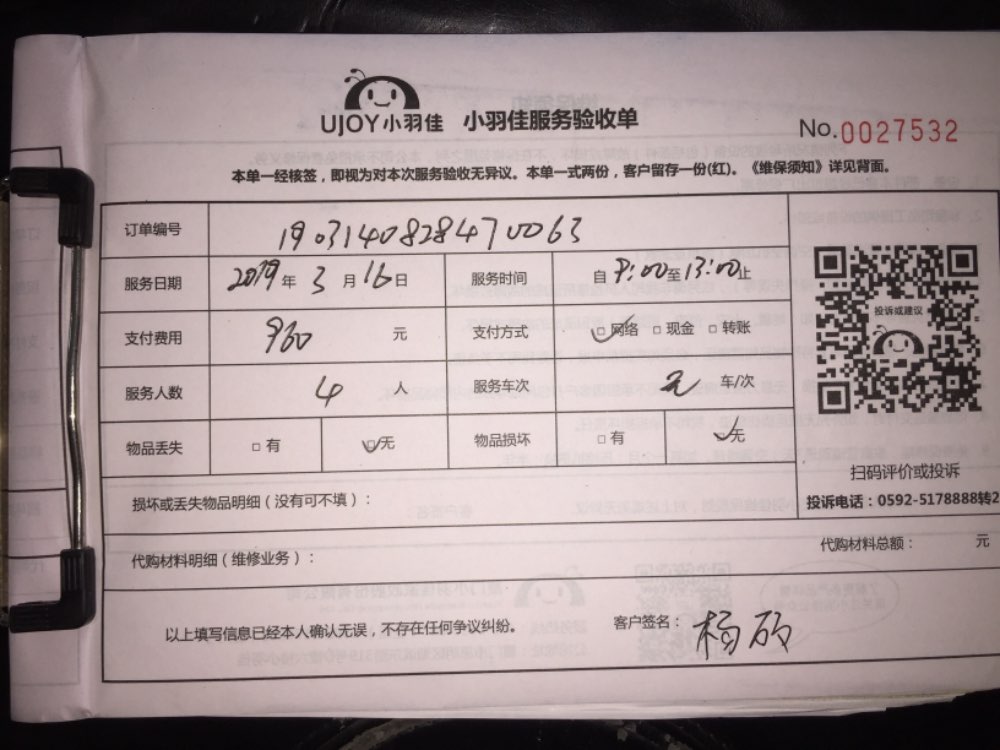 UJOY小羽佳 小羽佳服务验收单
No.0027532
本单一经核签，即视为对本次服务验收无异议。本单一式两份，客户留存一份(红)。《维保须知》详见背面。
订单编号 190314082847 0063
服务日期 2019年3月16日 服务时间 自9:00至13:00止
支付费用 960 元 支付方式 ☑网络 □现金 □转账
服务人数 4 人 服务车次 2 车/次
物品丢失 □有 ☑无 物品损坏 □有 ☑无
投诉或建议
扫码评价或投诉
投诉电话：0592-5178888转2
损坏或丢失物品明细（没有可不填）：
代购材料明细（维修业务）： 代购材料总额： 元
以上填写信息已经本人确认无误，不存在任何争议纠纷。 客户签名：杨